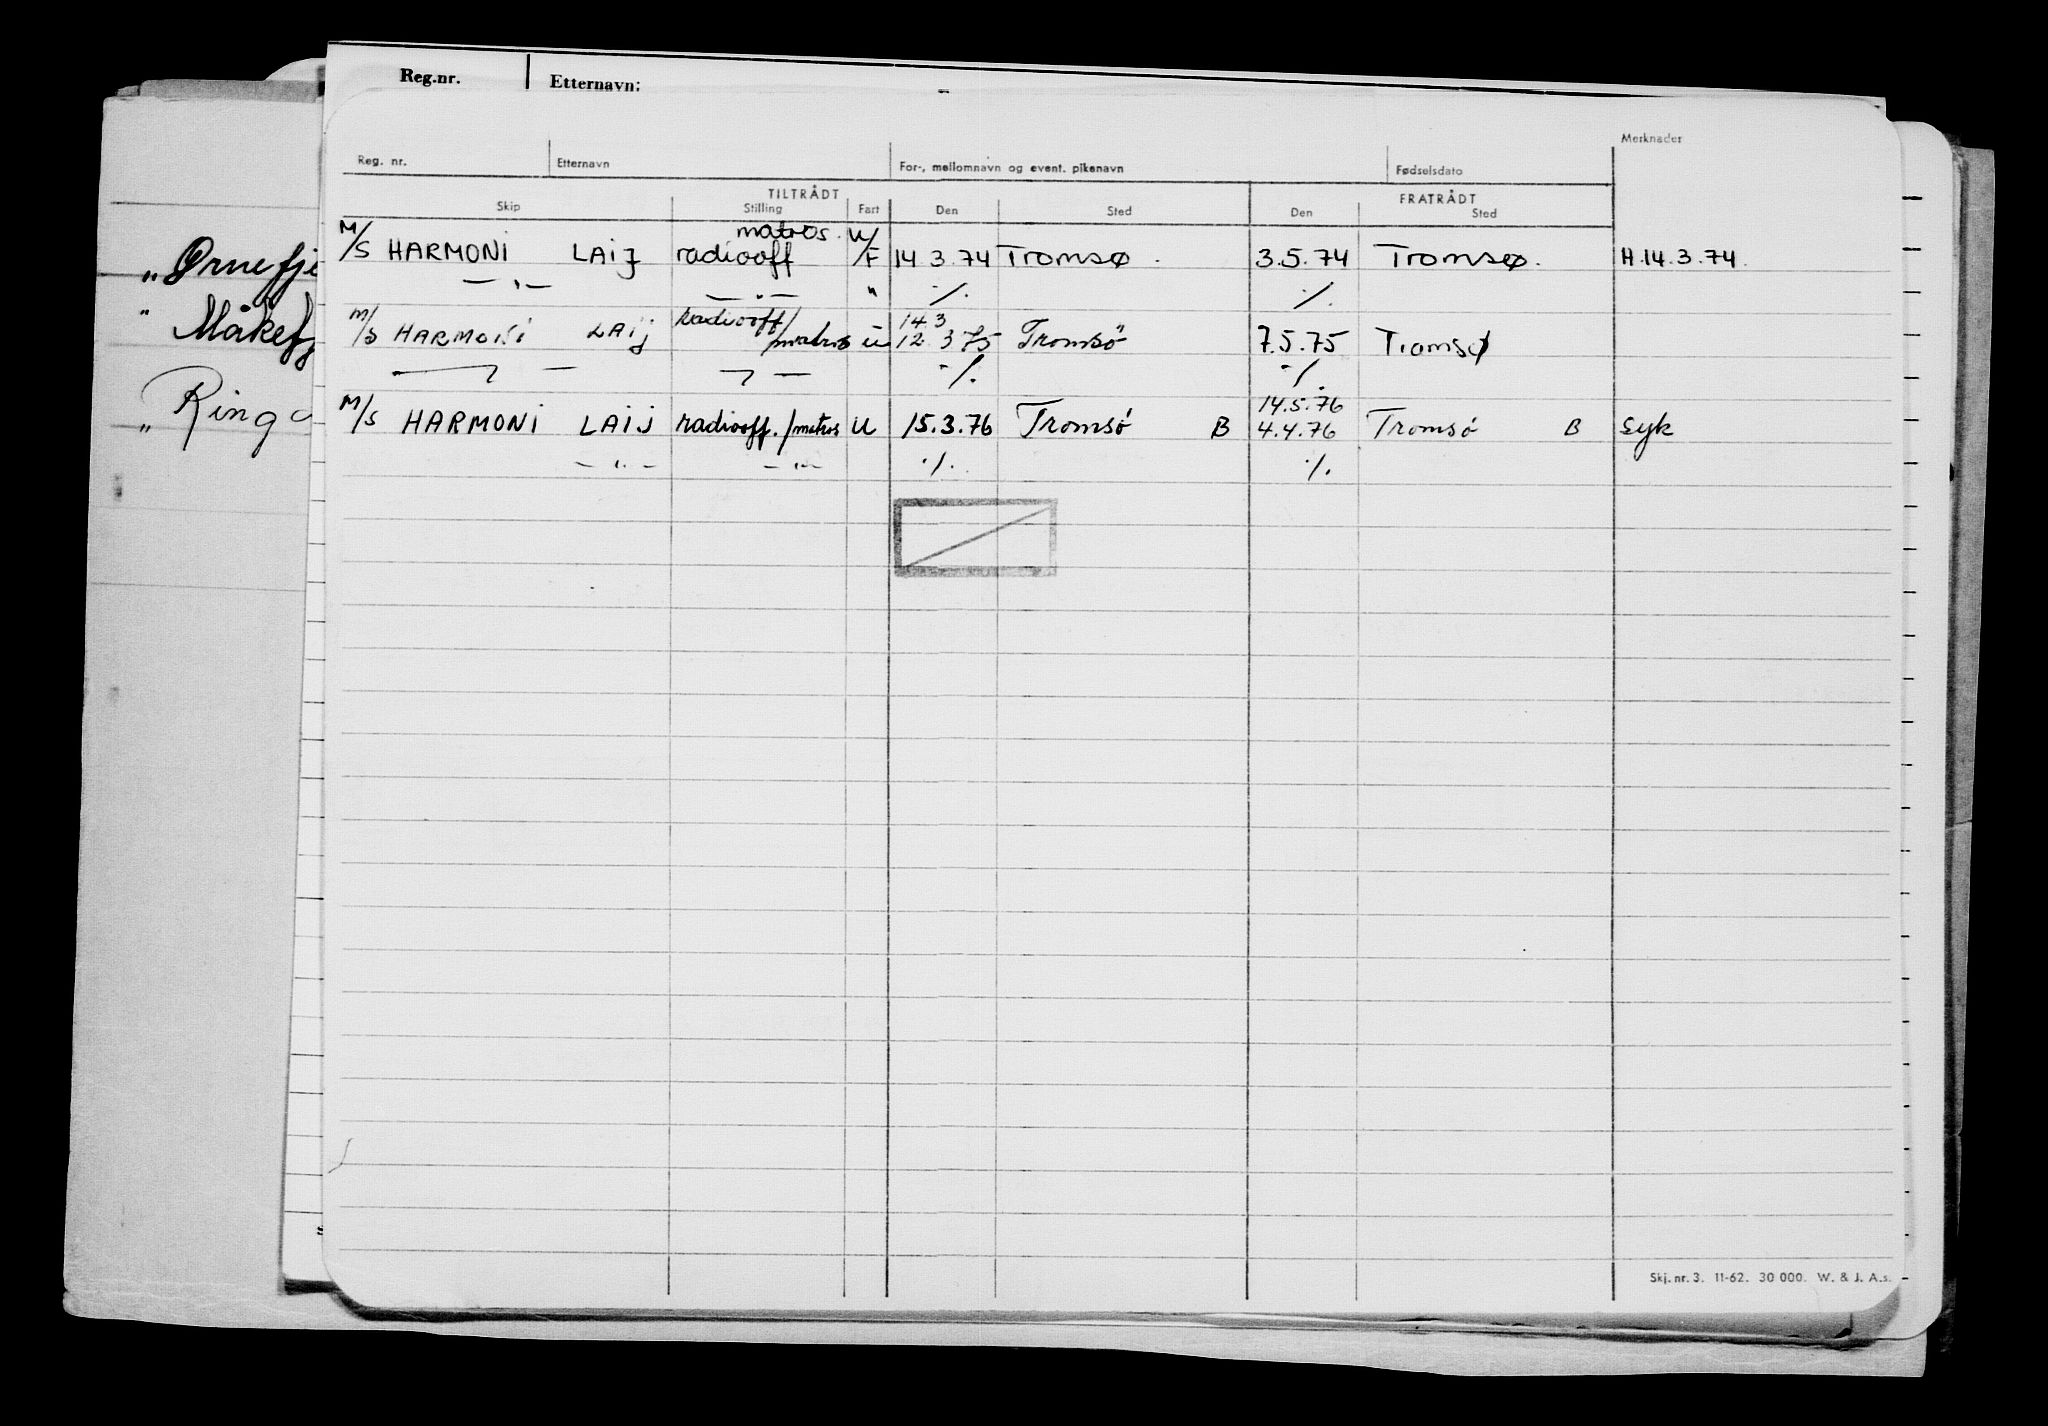 Reg.nr. Etternavn:
Merknader
Reg. nr. Etternavn For-, mellomnavn og event. pikenavn Fødselsdato
TILTRÅDT FRATRÅDT
Skip Stilling Fart Den Sted Den Sted
matros.
M/S HARMONI LAIJ radiooff U/F 14 3.74 Tromsø. 3.5.74 Tromsø. H.14.3.74.
— " — — " — " ./. ./.
radiooff/ 14.3
M/S HARMONI LAIJ /matros U 12.3 75 Tromsö 7.5.75 Tromsø
— " — — " — ./. ./.
14.5.76
M/S HARMONI LAIJ radiooff./matros U 15.3.76 Tromsö B 4.4.76 Tromsö B syk
— " — — " — ./. ./.
„ Ørnefj
" Måkef
„ Ring
Skj. nr. 3. 11-62. 30 000. W. & J. A.s.